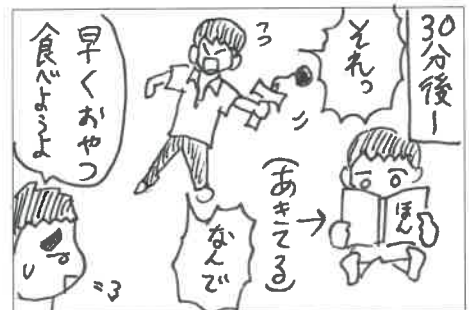 30分後ー
それっ
ほん
(あきてる)
なんで
早くおやつ
食べようよ